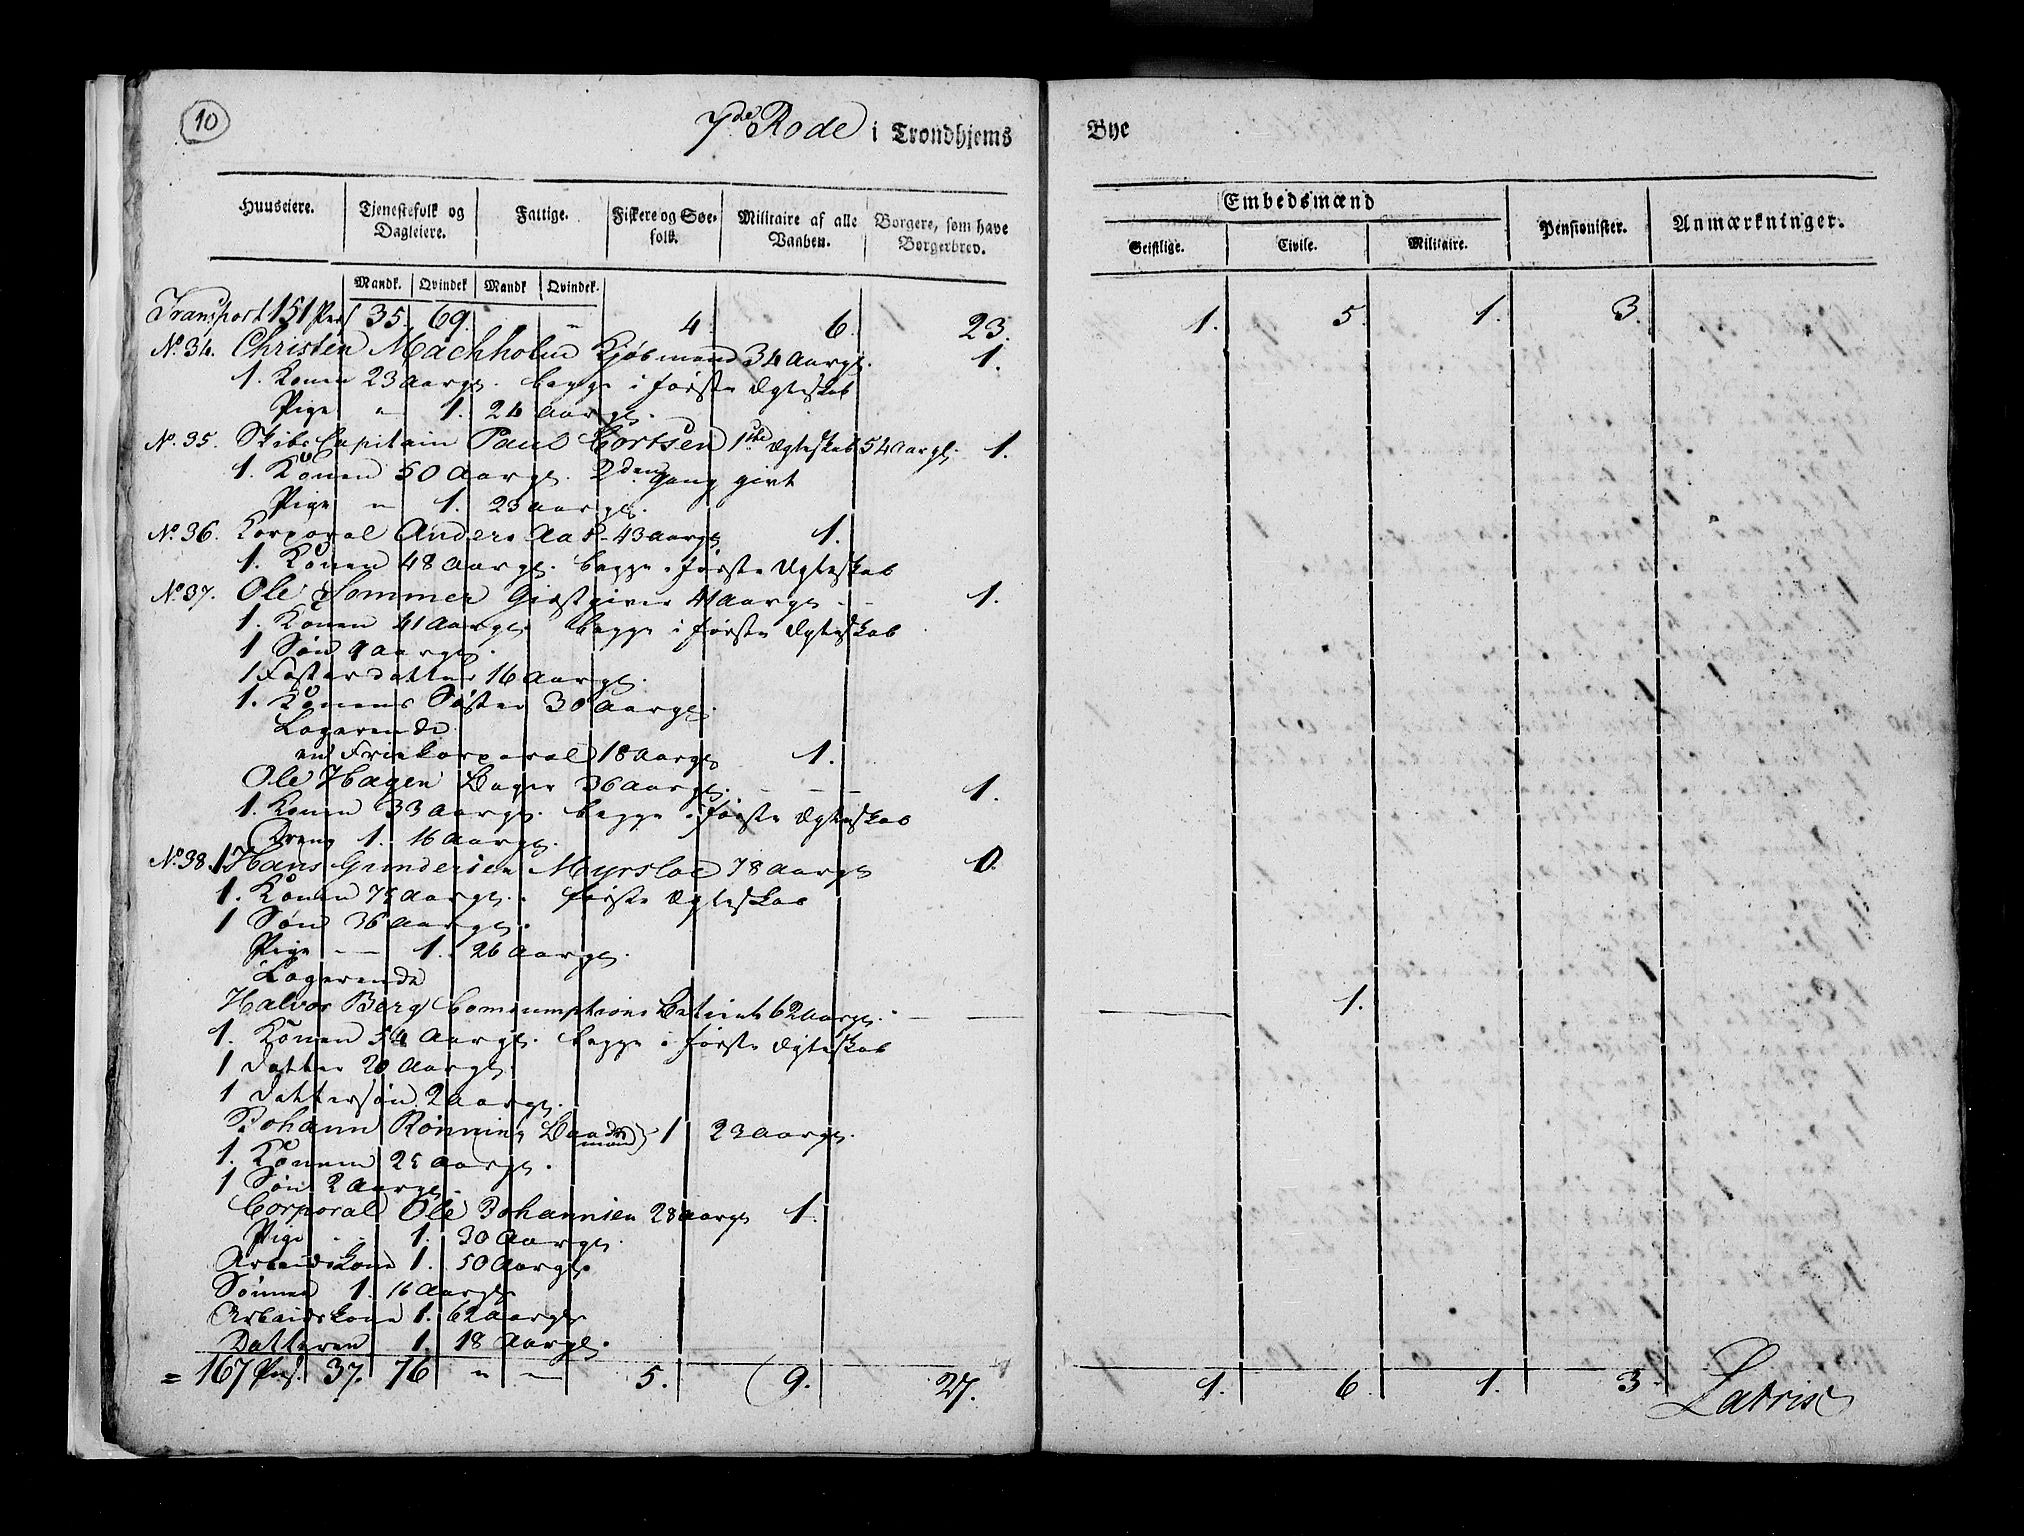 10
7de Rode i Trondhjems Bye
Huuseiere. Tjenestefolk og Dagleiere. Fattige. Fiskere og Søefolk. Militaire af alle Vaaben. Borgere, som have Borgerbrev. Embedsmænd Pensionister. Anmærkninger.
Geistlige. Civile. Militaire.
Mandk. Qvindek Mandk Qvindek.
Transport 151 Pers 35. 69. 4. 6. 23. 1. 5. 1. 3.
No. 34. Christen Machholm Kjøbmand 34 Aargl. 1.
1. Konen 23 Aargl. begge i første Ægteskab
Pige " 1. 24 Aargl.
No. 35. Skibs Capitain Paul Cortsen 1ste Ægteskab 54 Aargl. 1.
1. Konen 50 Aargl. 2den Gang givt
Pige " 1. 23 Aargl.
No. 36. Corporal Anders Aas 43 Aargl 1.
1. Konen 48 Aargl. begge i første Ægteskab
No. 37. Ole Sommer Giæstgiver 41 Aargl - - 1.
1. Konen 41 Aargl. begge i første Ægteskab
1 Søn 9 Aargl.
1 Fosterdatter 16 Aargl.
1. Konens Søster 30 Aargl.
Logerende
en Friekorporal 18 Aargl 1.
Ole Hagen Bager 36 Aargl. - - - 1.
1. Konen 33 Aargl. begge i første Ægteskab
Dreng 1. 16 Aargl.
No. 38. 1 Hans Gundersen Myrsloe 78 Aargl 0.
1. Konen Aargl. første Ægteskab
1 Søn 36 Aargl.
Pige - - 1. 26 Aargl.
Logerende
Halvor Berg Consumptions Betient 62 Aargl. - - - 1.
1. Konen 54 Aargl. begge i første Ægteskab
1 Datter 20 Aargl.
1 Dattersøn 2 Aargl.
Johann Rønning 1 23 Aargl.
1. Konen 25 Aargl.
1 Søn 2 Aargl.
Corporal Ole Johannsen 28 Aargl 1.
Pige - - 1. 30 Aargl.
Arbeidskone 1. 50 Aargl.
Sønnen 1. 16 Aargl
Arbeidskone 1. 62 Aargl
Datteren 1. 18 Aargl.
= 167 Pers. 37. 76 " — 5. 9. 27. 1. 6. 1. 3. Latris